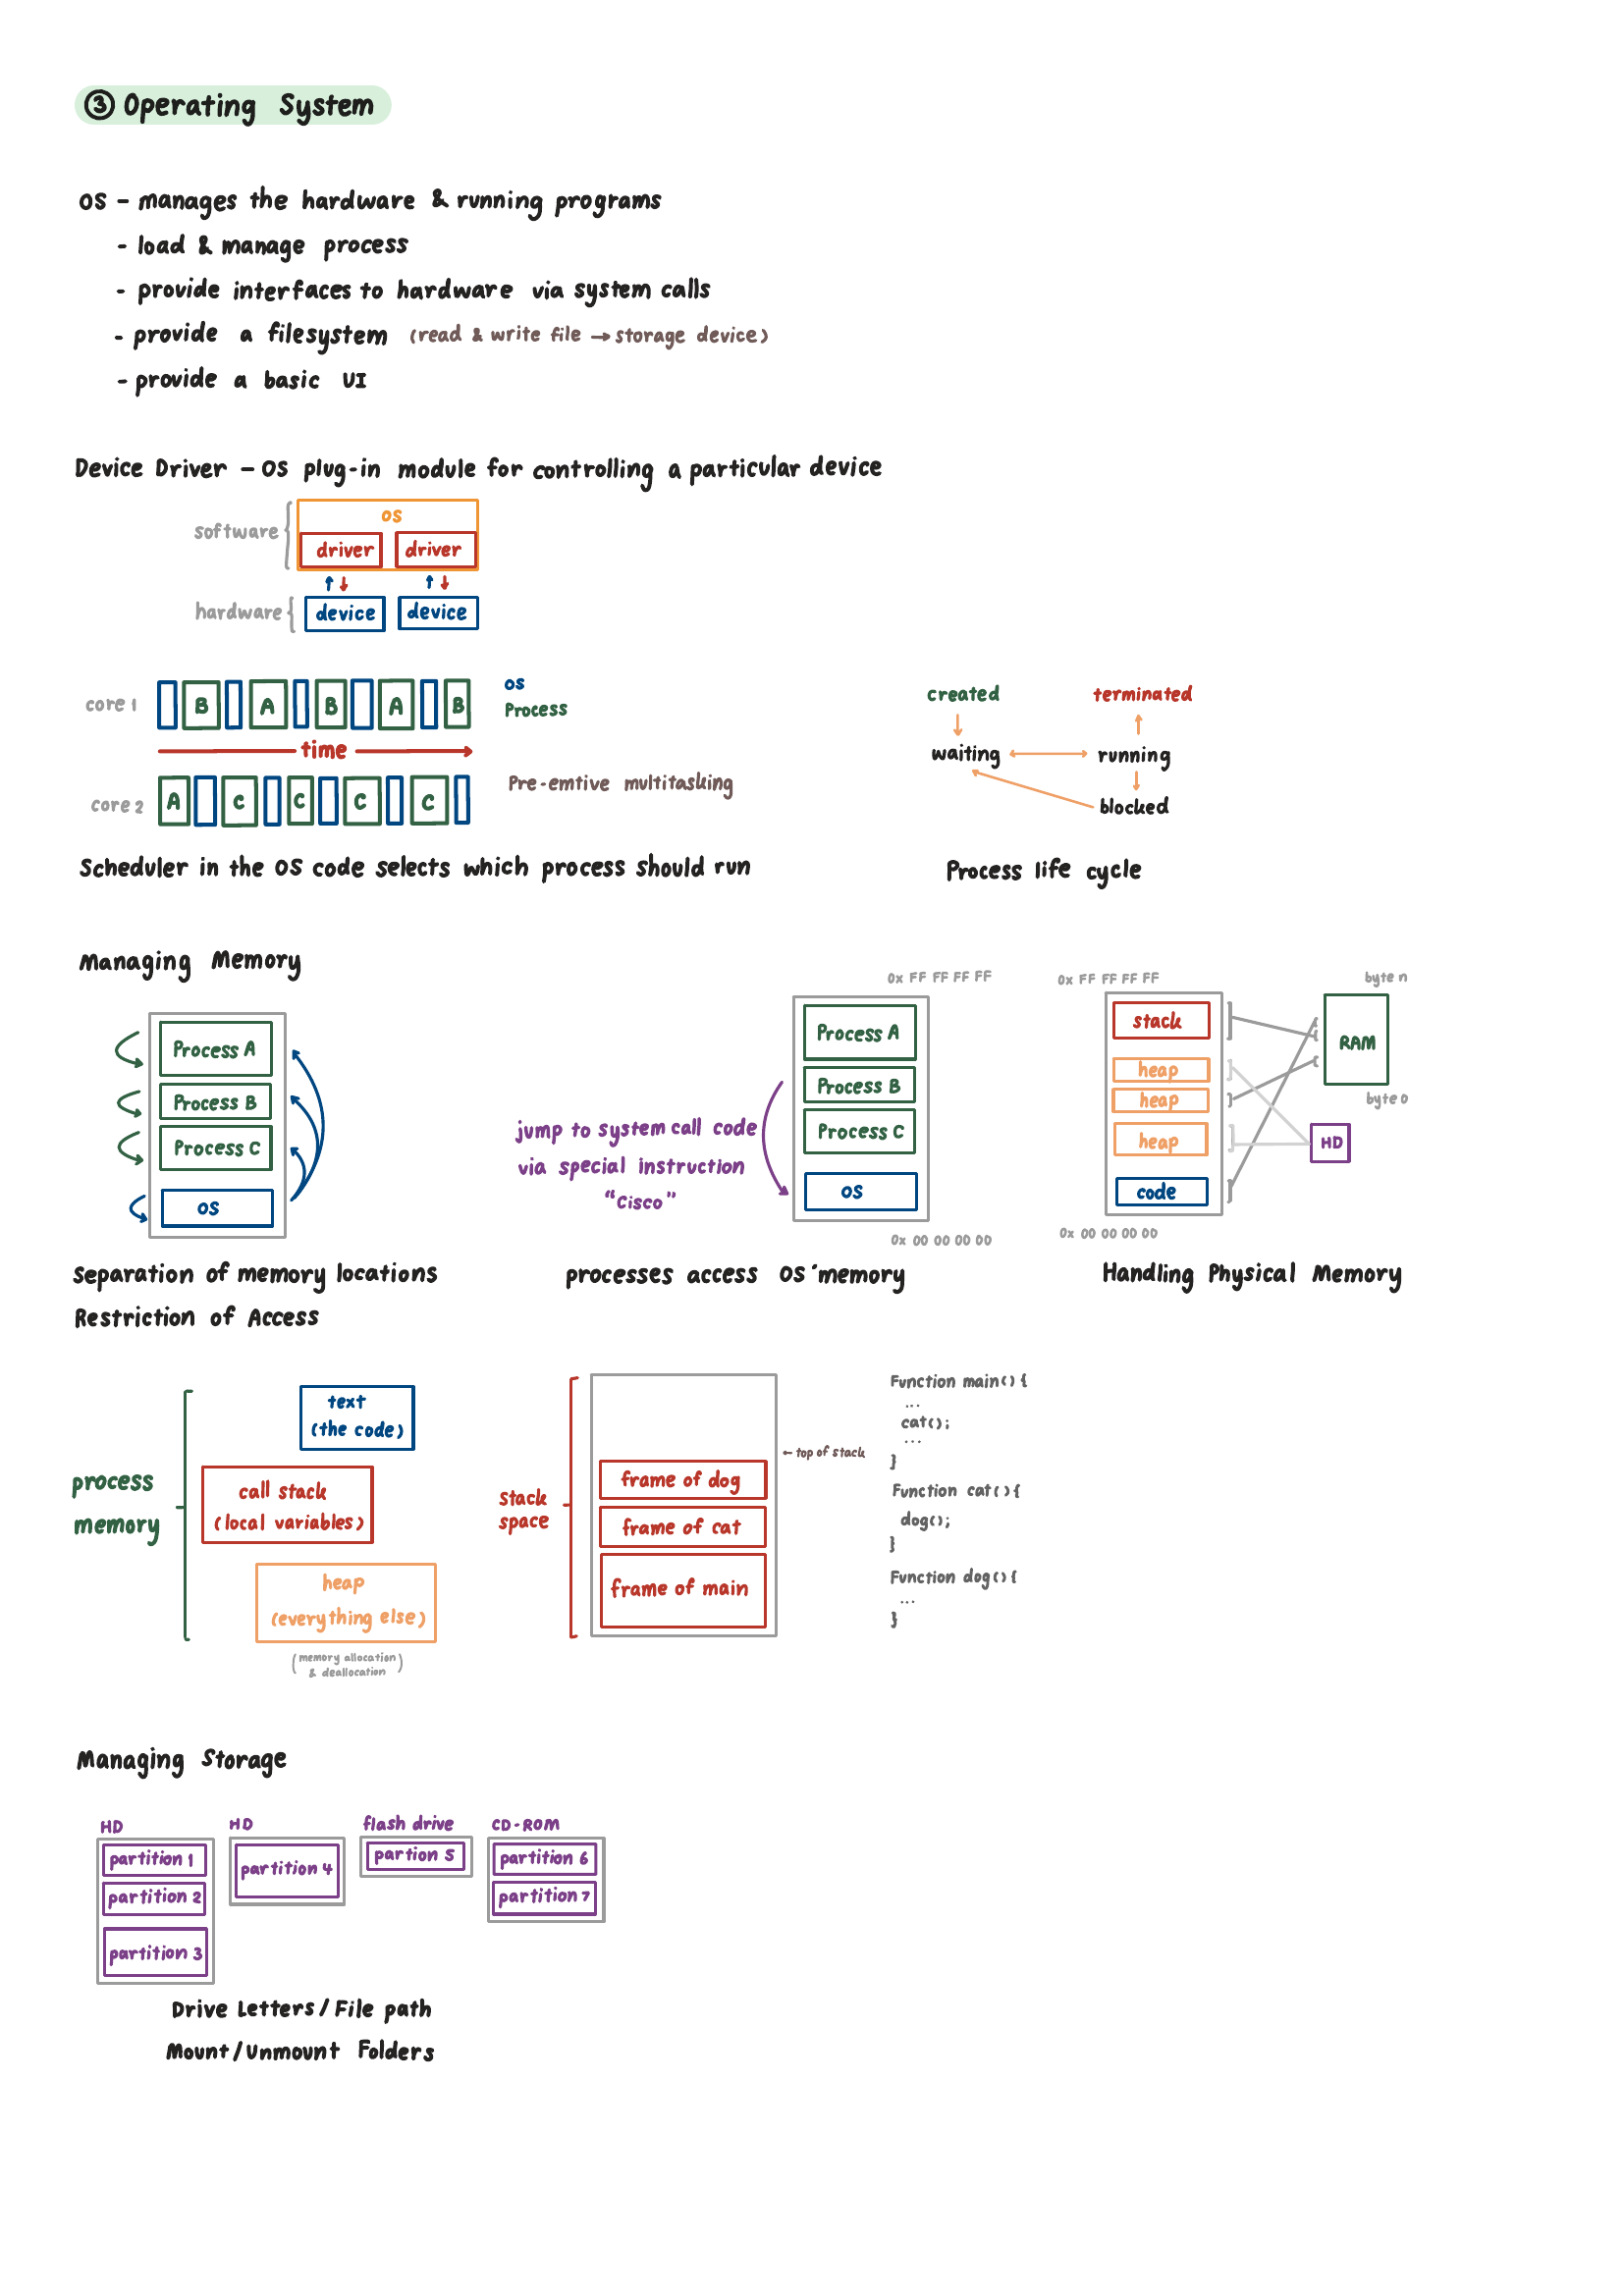 ③ Operating System
OS - manages the hardware & running programs
- load & manage process
- provide interfaces to hardware via system calls
- provide a filesystem (read & write file → storage device)
- provide a basic UI
Device Driver - OS plug-in module for controlling a particular device
software
OS
driver driver
hardware
device device
core 1
B A B A B
OS
Process
time
core 2
A C C C C
Pre-emtive multitasking
Scheduler in the OS code selects which process should run
created terminated
waiting running
blocked
Process life cycle
Managing Memory
Process A
Process B
Process C
OS
Separation of memory locations
Restriction of Access
0x FF FF FF FF
Process A
Process B
Process C
OS
0x 00 00 00 00
jump to system call code
via special instruction
"Cisco"
processes access OS' memory
0x FF FF FF FF
stack
heap
heap
heap
code
0x 00 00 00 00
byte n
RAM
byte 0
HD
Handling Physical Memory
process
memory
text
(the code)
call stack
(local variables)
heap
(everything else)
(memory allocation
& deallocation)
stack
space
← top of stack
frame of dog
frame of cat
frame of main
Function main() {
...
cat();
...
}
Function cat() {
dog();
}
Function dog() {
...
}
Managing Storage
HD
partition 1
partition 2
partition 3
HD
partition 4
flash drive
partion 5
CD-ROM
partition 6
partition 7
Drive Letters / File path
Mount/Unmount Folders